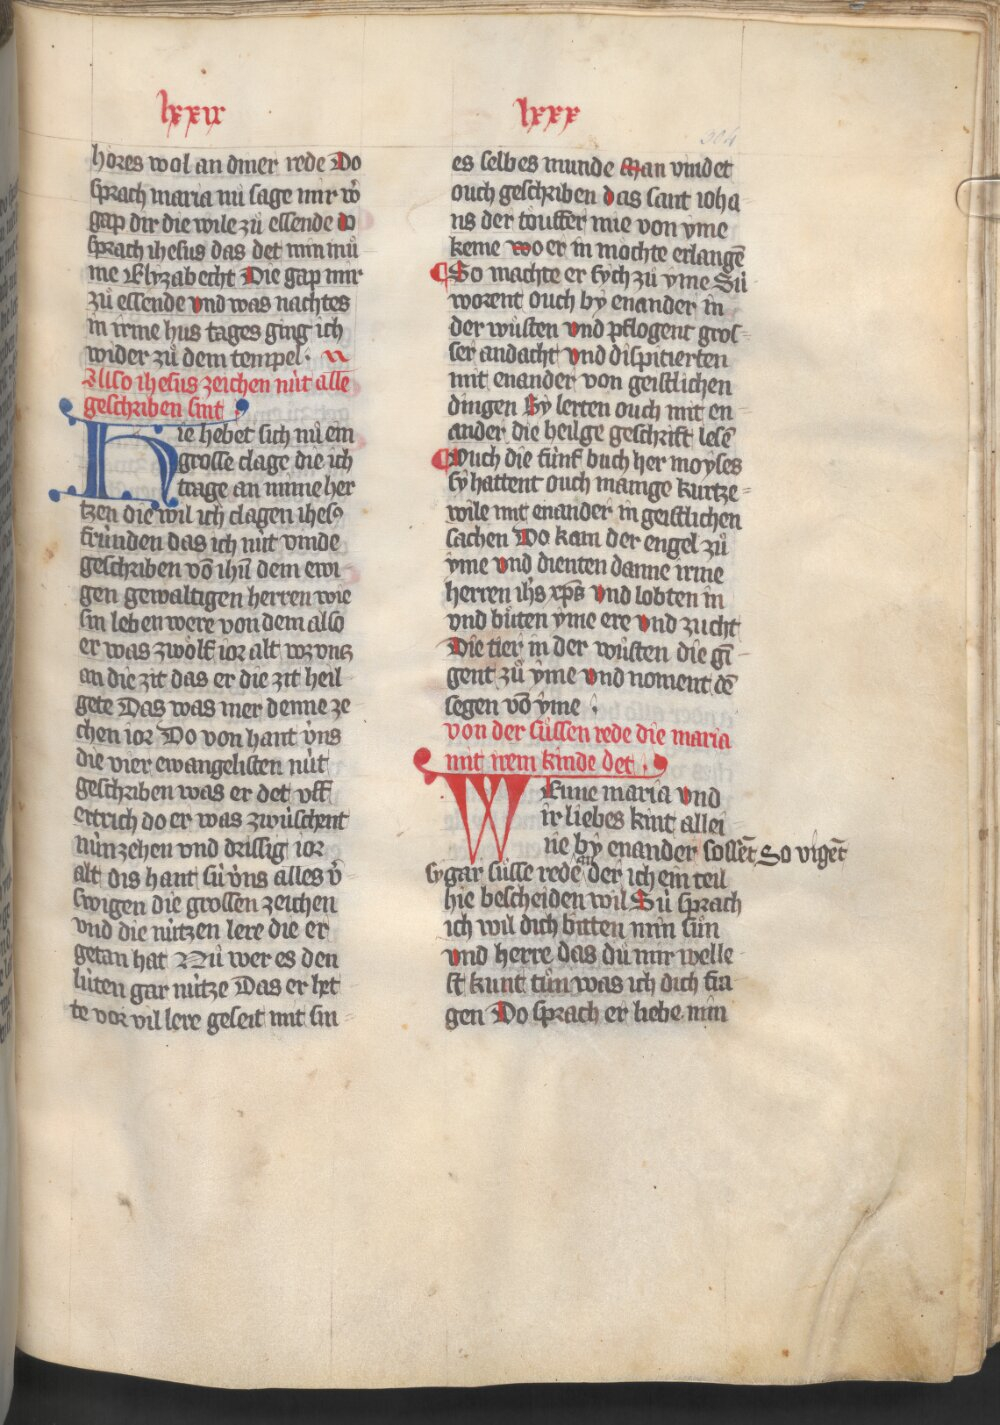 lxxix
hoͤres wol an diner rede Do
sprach maria nu sage mir wͦ
gap dir die wile zuͦ essende do
sprach ihesus das det min muͦ
me Elyzabecht Die gap mir
zuͦ essende vnd was nachtes
in irme hus tages ging ich
wider zuͦ dem tempel.
Also ihesus zeichen nút alle
geschriben sint.
Hie hebet sich nuͦ ein
grosse clage die ich
trage an mime her
tzen die wil ich clagen ihesꝰ
frúnden das ich nút vinde
geschriben vō ihū dem ewi
gen gewaltigen herren wie
sin leben were von dem also
er was zwoͤlf ior alt wz vntz
an die zit das er die zit heil
gete Das was mer denne ze
chen ior Do von hant v́ns
die vier ewangelisten nút
geschriben was er det vff
ertrich do er was zwúschent
núnzehen vnd drissig ior
alt dis hant sú v́ns alles v̄
swigen die grossen zeichen
vnd die nútzen lere die er
getan hat Nuͦ wer es den
lúten gar nútze Das er het
te vor vil lere geseit mit sin
lxxx
304
es selbes munde Man vindet
ouch geschriben das sant ioha
ns der touffer nie von yme
keme wo er in moͤchte erlangē
So machte er sych zuͦ yme Sú
worent ouch by enander in
der wuͤsten vnd pflogent gros
ser andacht vnd dispitierten
mit enander von geistlichen
dingen Sy lerten ouch mit en
ander die heilge geschrift lesē
Ouch die fúnf buch her moyses
sy hattent ouch manige kurtze
wile mit enander in geistlichen
sachen Do kam der engel zuͦ
yme vnd dienten danne irme
herren ih̄s xp̄s vnd lobten in
vnd búten yme ere vnd zucht
Die tier in der wuͤsten die gī
gent zuͦ yme vnd noment dē
segen vō yme.
von der sússen rede die maria
mit irem kinde det.
Wenne maria vnd
ir liebes kint allei
ne by enander sossēt So vigēt
sy gar sússe rede an der ich ein teil
hie bescheiden wil Sú sprach
ich wil dich bitten min sun
vnd herre das du mir welle
st kunt tuͦn was ich dich fra
gen Do sprach er liebe min